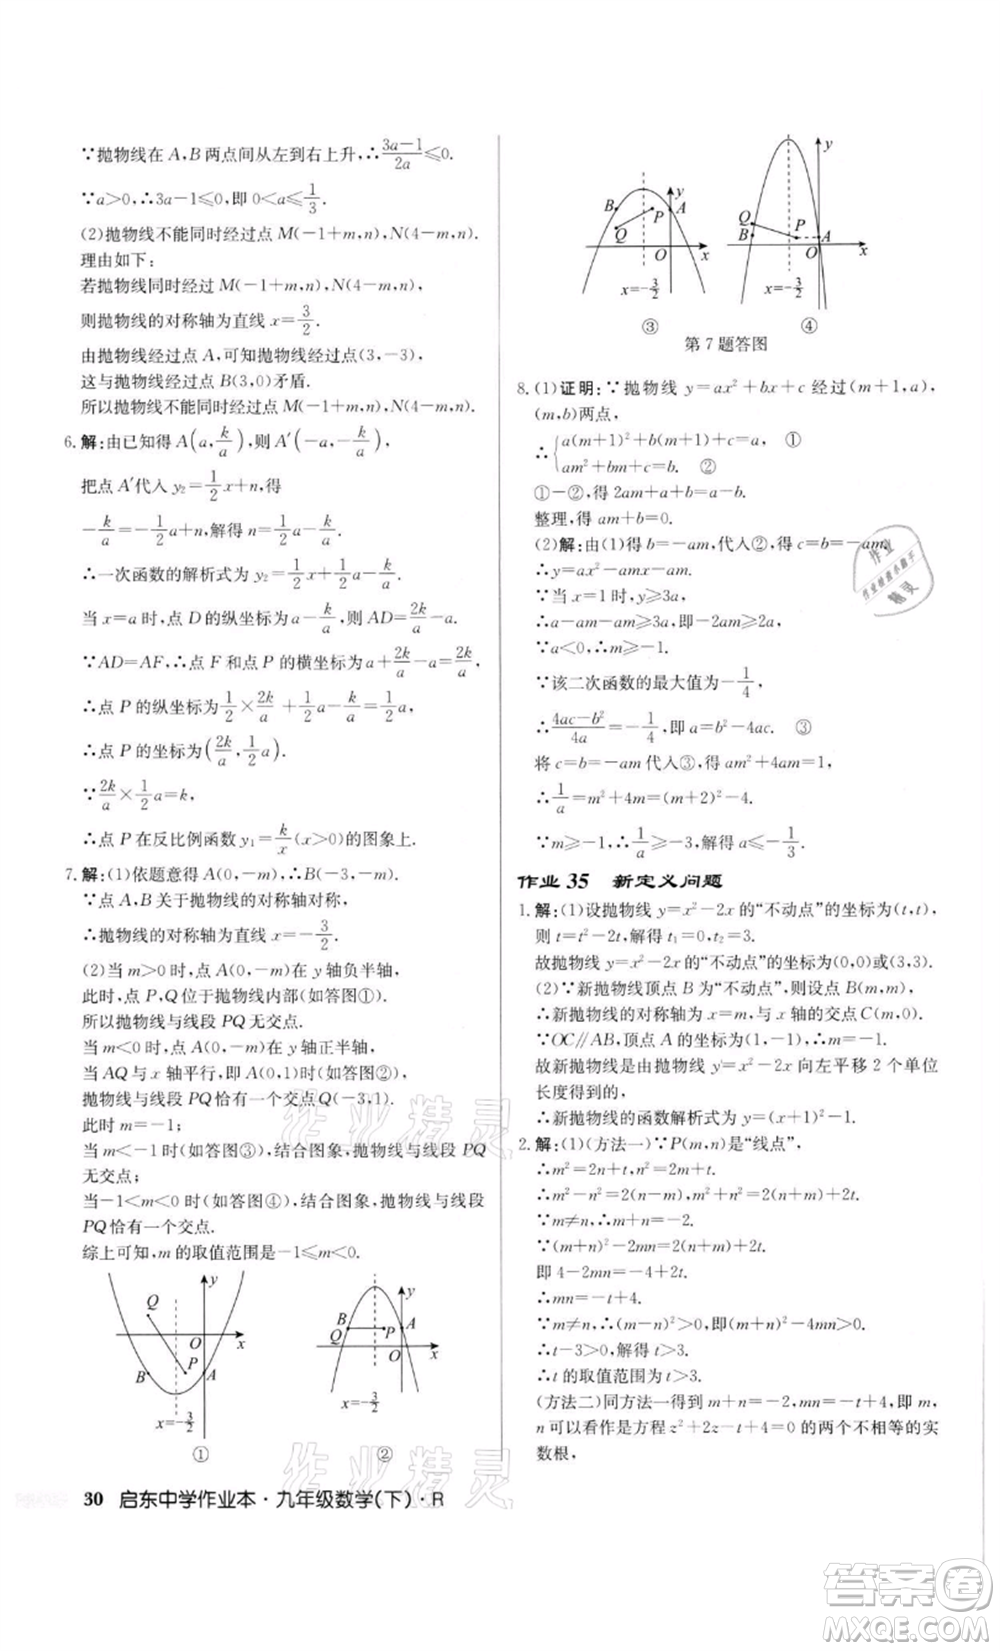 ∵抛物线在 A,B 两点间从左到右上升,∴(3a-1)/(2a)≤0.
∵a>0,∴3a-1≤0,即 0<a≤1/3.
(2)抛物线不能同时经过点 M(-1+m,n),N(4-m,n).
理由如下:
若抛物线同时经过 M(-1+m,n),N(4-m,n),
则抛物线的对称轴为直线 x=3/2.
由抛物线经过点 A,可知抛物线经过(3,-3),
这与抛物线经过点 B(3,0)矛盾.
所以抛物线不能同时经过点 M(-1+m,n),N(4-m,n).
6.解:由已知得 A(a,k/a),则 A′(-a,-k/a),
把点 A′代入 y₂=1/2x+n,得
-k/a=-1/2a+n,解得 n=1/2a-k/a.
∴一次函数的解析式为 y₂=1/2x+1/2a-k/a.
当 x=a 时,点 D 的纵坐标为 a-k/a,∴AD=2k/a-a.
∵AD=AF,∴点 F 和点 P 的横坐标为 a+2k/a-a=2k/a,
∴点 P 的纵坐标为1/2×2k/a+1/2a-k/a=1/2a.
∴点 P 的坐标为(2k/a,1/2a).
∵2k/a×1/2a=k,
∴点 P 在反比例函数 y₁=k/x(x>0)的图象上.
7.解:(1)依题意得 A(0,-m),∴B(-3,-m).
∵点 A,B 关于抛物线的对称轴对称,
∴抛物线的对称轴为直线 x=-3/2.
(2)当 m>0 时,点 A(0,-m)在 y 轴负半轴,
此时,点 P,Q 位于抛物线内部(如答图①).
所以抛物线与线段 PQ 无交点.
当 m<0 时,点 A(0,-m)在 y 轴正半轴,
当 AQ 与 x 轴平行,即 A(0,1)时(如答图②),
抛物线与线段 PQ 恰有一个交点 Q(-3,1).
此时 m=-1;
当 m<-1 时(如答图③),结合图象,抛物线与线段 PQ
无交点;
当-1<m<0 时(如答图④),结合图象,抛物线与线段
PQ 恰有一个交点.
综上可知,m 的取值范围是-1≤m<0.
y
Q
O
x
P
B
A
x=-3/2
①
y
B
A
Q
P
O
x
x=-3/2
②
30 启东中学作业本·九年级数学(下)·R
y
B
P
A
Q
O
x
x=-3/2
③
y
Q
P
B
A
O
x
x=-3/2
④
第 7 题答图
8.(1)证明:∵抛物线 y=ax²+bx+c 经过(m+1,a),
(m,b)两点,
∴{a(m+1)²+b(m+1)+c=a, ①
am²+bm+c=b. ②
①-②,得 2am+a+b=a-b.
整理,得 am+b=0.
(2)解:由(1)得 b=-am,代入②,得 c=b=-am.
∴y=ax²-amx-am.
∵当 x=1 时,y≥3a,
∴a-am-am≥3a,∴-2am≥2a.
∵a<0,∴m≥-1.
∵该二次函数的最大值为-1/4,
∴(4ac-b²)/(4a)=-1/4,即 a=b²-4ac. ③
将 c=b=-am 代入③,得 am²+4am=1,
∴1/a=m²+4m=(m+2)²-4.
∵m≥-1,∴1/a≥-3,解得 a≤-1/3.
作业 35 新定义问题
1.解:(1)设抛物线 y=x²-2x 的“不动点”的坐标为(t,t),
则 t=t²-2t,解得 t₁=0,t₂=3.
故抛物线 y=x²-2x 的“不动点”的坐标为(0,0)或(3,3).
(2)∵新抛物线顶点 B 为“不动点”,则设点 B(m,m),
∴新抛物线的对称轴为 x=m,与 x 轴的交点 C(m,0).
∵OC∥AB,顶点 A 的坐标为(1,-1),∴m=-1.
故新抛物线是由抛物线 y=x²-2x 向左平移 2 个单位
长度得到的,
∴新抛物线的函数解析式为 y=(x+1)²-1.
2.解:(1)(方法一)∵P(m,n)是“线点”,
∴m²=2n+t,n²=2m+t.
∴m²-n²=2n-2m,m²+n²=2m+2n+2t.
∵m≠n,∴m+n=-2.
∵(m+n)²-2mn=2(m+n)+2t.
即 4-2mn=-4+2t.
∴mn=-t+4.
∵m≠n,∴(m-n)²>0,∴m²-2mn+n²>0.
∴t-3>0,解得 t>3.
∴t 的取值范围为 t>3.
(方法二)同方法一得到 m+n=-2,mn=-t+4,即 m,
n 可以看作是方程 z²+2z-t+4=0 的两个不相等的实
数根,
作业
作业检查小助手
精灵
作业精灵
作业精灵
答案卷
MXQE.COM